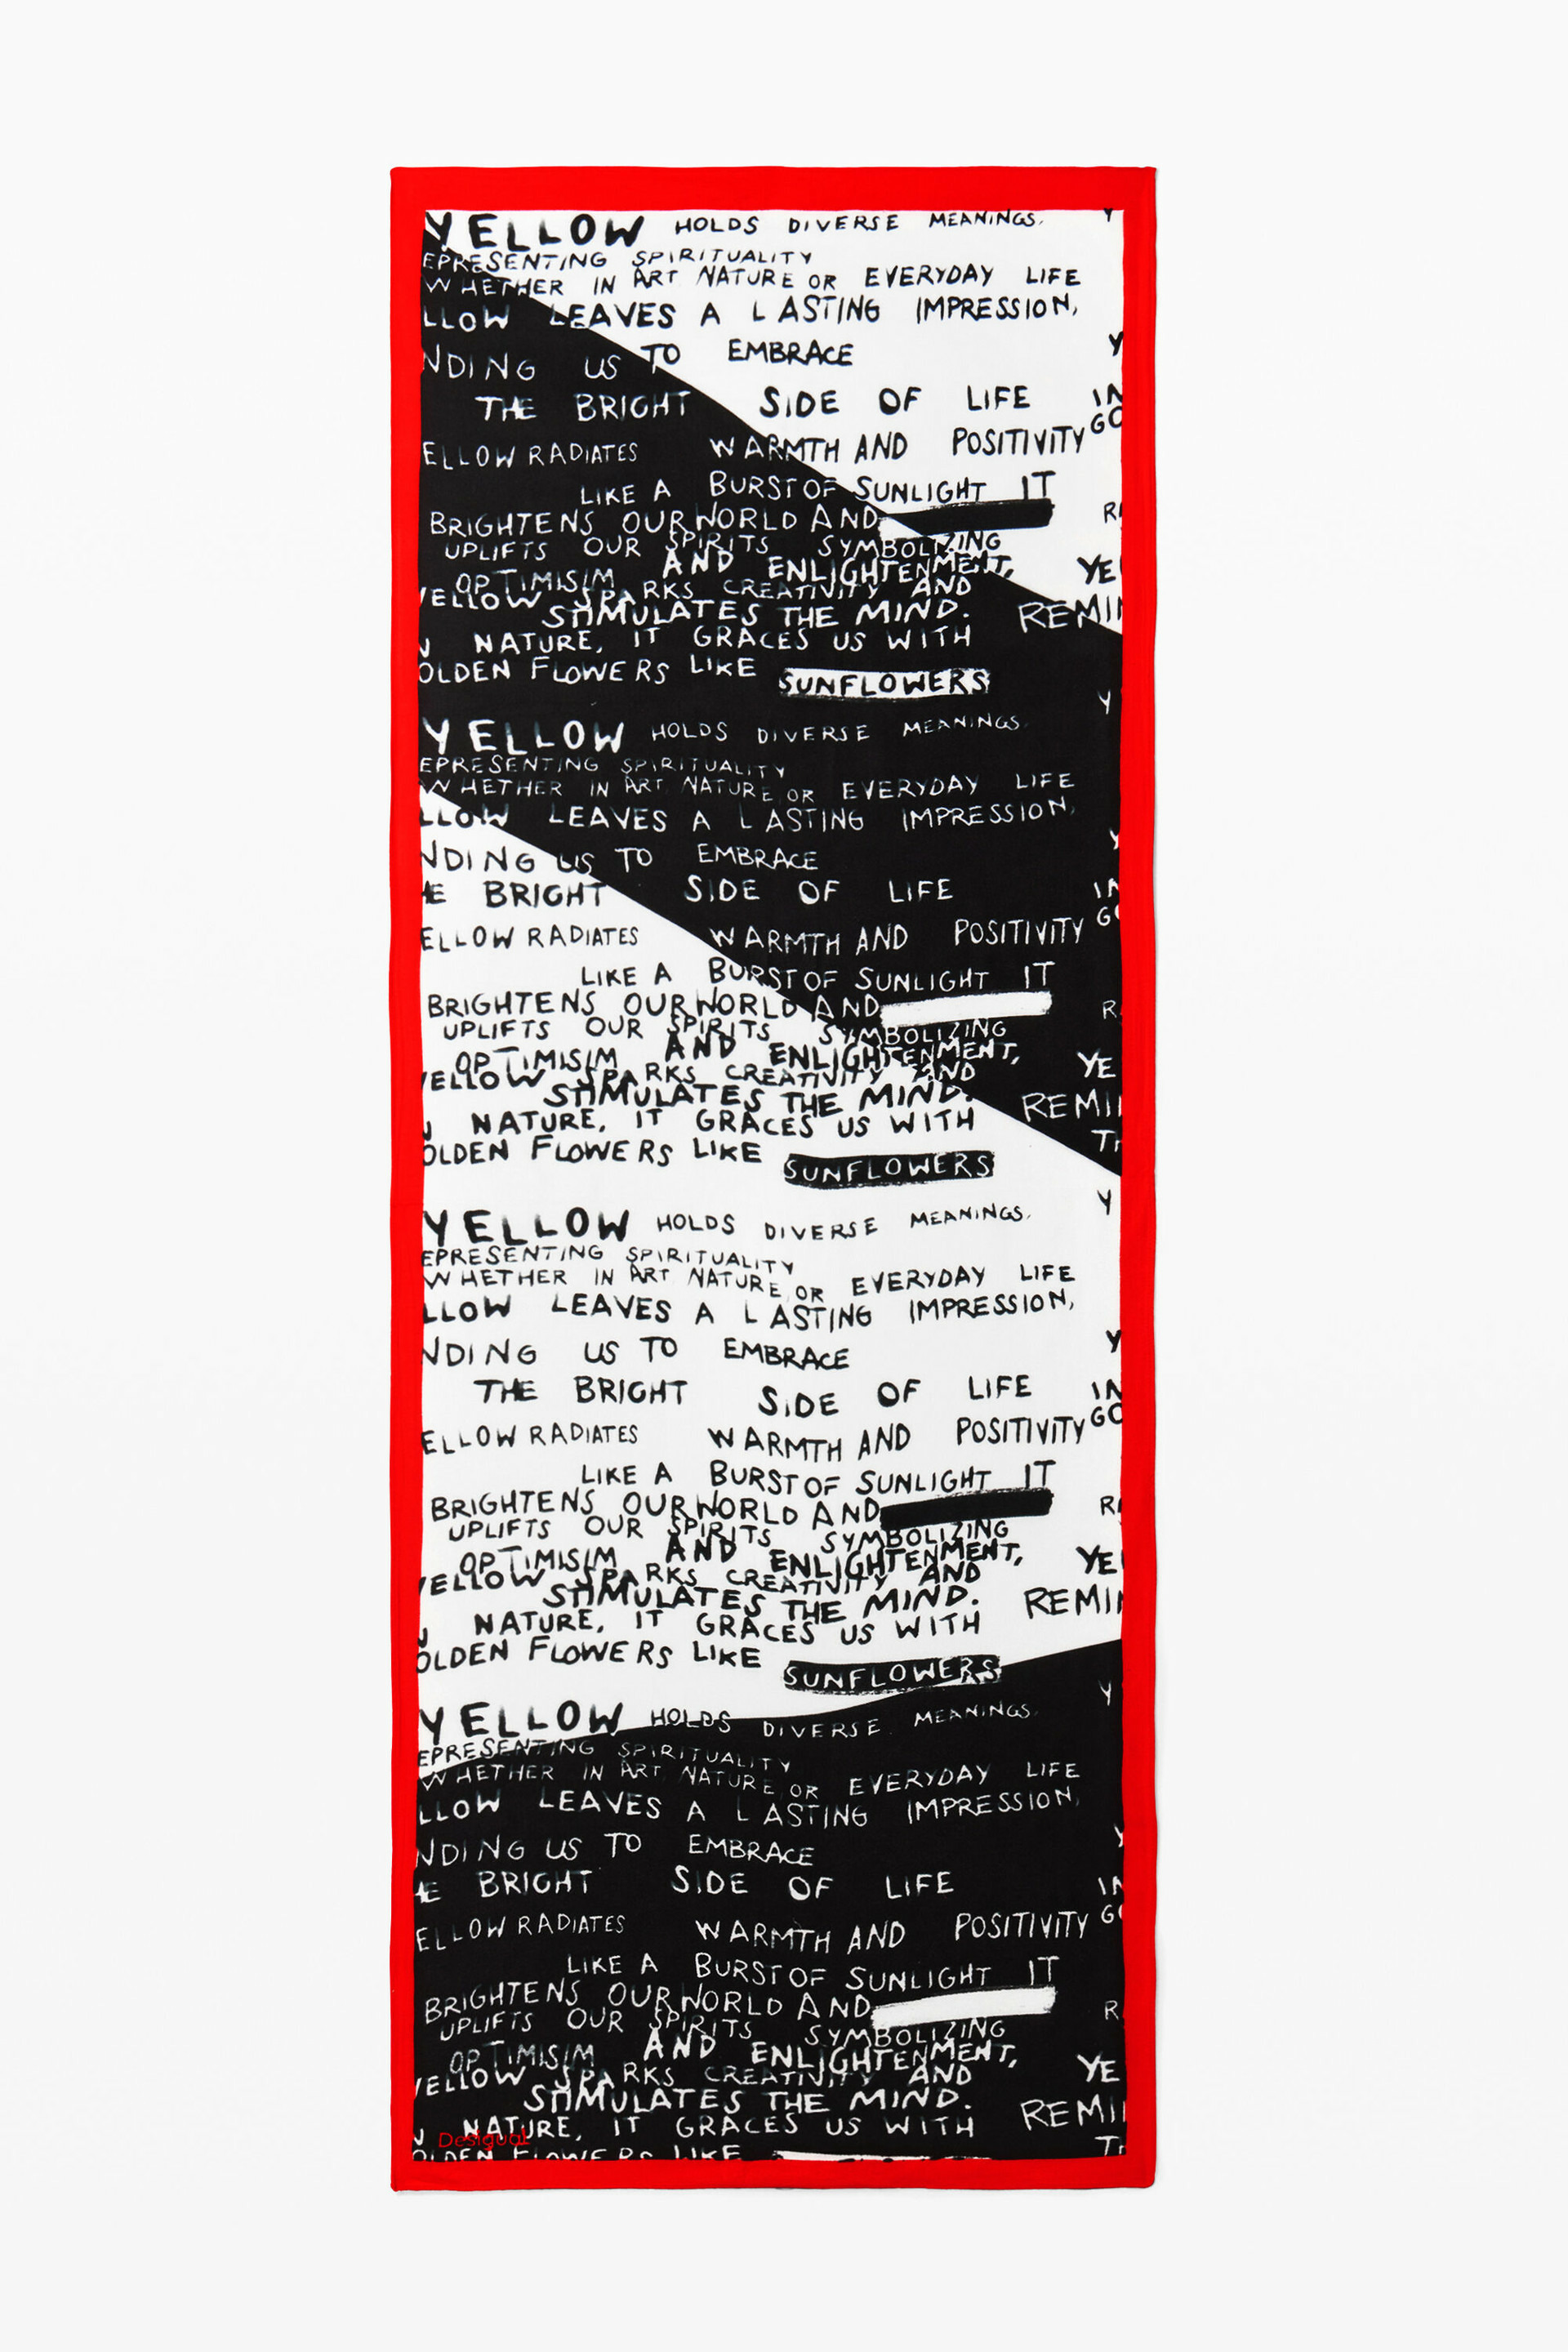 YELLOW HOLDS DIVERSE MEANINGS. Y
EPRESENTING SPIRITUALITY
WHETHER IN ART NATURE OR EVERYDAY LIFE
LLOW LEAVES A LASTING IMPRESSION,
Y
NDING US TO EMBRACE
THE BRIGHT SIDE OF LIFE IN
GO
ELLOW RADIATES WARMTH AND POSITIVITY
LIKE A BURST OF SUNLIGHT IT
BRIGHTENS OUR WORLD AND R
UPLIFTS OUR SPIRITS SYMBOLIZING
OPTIMISIM AND ENLIGHTENMENT, YE
YELLOW SPARKS CREATIVITY AND
STIMULATES THE MIND. REMI
N NATURE, IT GRACES US WITH
OLDEN FLOWERS LIKE SUNFLOWERS
Y
YELLOW HOLDS DIVERSE MEANINGS.
EPRESENTING SPIRITUALITY
WHETHER IN ART NATURE OR EVERYDAY LIFE
LLOW LEAVES A LASTING IMPRESSION,
Y
NDING US TO EMBRACE
HE BRIGHT SIDE OF LIFE IN
GO
ELLOW RADIATES WARMTH AND POSITIVITY
LIKE A BURST OF SUNLIGHT IT
BRIGHTENS OUR WORLD AND R
UPLIFTS OUR SPIRITS SYMBOLIZING
OPTIMISIM AND ENLIGHTENMENT, YE
YELLOW SPARKS CREATIVITY AND
STIMULATES THE MIND. REMI
N NATURE, IT GRACES US WITH TH
OLDEN FLOWERS LIKE SUNFLOWERS
Y
YELLOW HOLDS DIVERSE MEANINGS.
EPRESENTING SPIRITUALITY
WHETHER IN ART NATURE OR EVERYDAY LIFE
LLOW LEAVES A LASTING IMPRESSION,
Y
NDING US TO EMBRACE
THE BRIGHT SIDE OF LIFE IN
GO
ELLOW RADIATES WARMTH AND POSITIVITY
LIKE A BURST OF SUNLIGHT IT
BRIGHTENS OUR WORLD AND R
UPLIFTS OUR SPIRITS SYMBOLIZING
OPTIMISIM AND ENLIGHTENMENT, YE
YELLOW SPARKS CREATIVITY AND
STIMULATES THE MIND. REMI
N NATURE, IT GRACES US WITH
OLDEN FLOWERS LIKE SUNFLOWERS
Y
YELLOW HOLDS DIVERSE MEANINGS.
EPRESENTING SPIRITUALITY
WHETHER IN ART NATURE OR EVERYDAY LIFE
LLOW LEAVES A LASTING IMPRESSION,
Y
NDING US TO EMBRACE
HE BRIGHT SIDE OF LIFE IN
GO
ELLOW RADIATES WARMTH AND POSITIVITY
LIKE A BURST OF SUNLIGHT IT
BRIGHTENS OUR WORLD AND R
UPLIFTS OUR SPIRITS SYMBOLIZING
OPTIMISIM AND ENLIGHTENMENT, YE
YELLOW SPARKS CREATIVITY AND
STIMULATES THE MIND. REMI
N NATURE, IT GRACES US WITH TH
Desigual
OLDEN FLOWERS LIKE